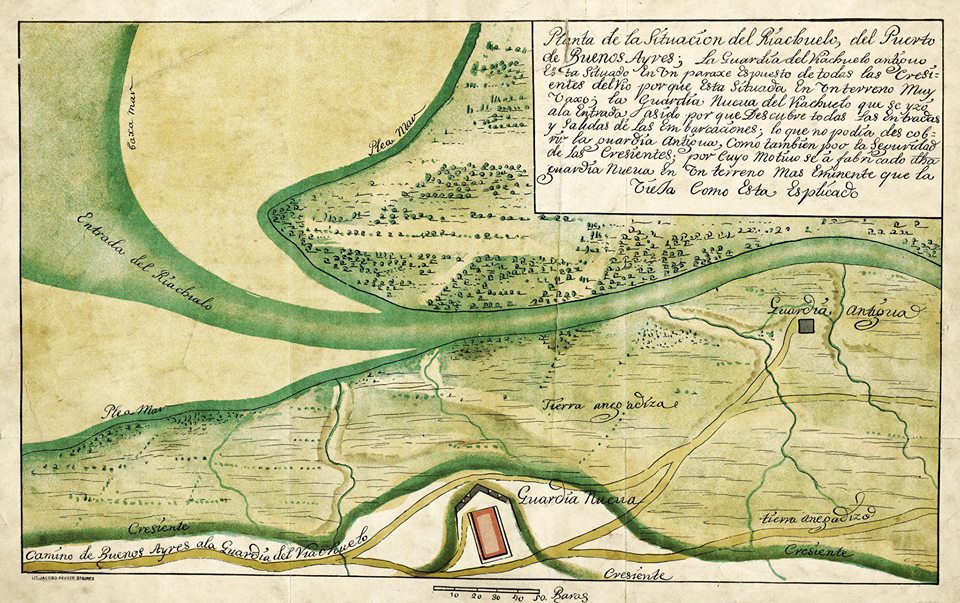 Planta de la Situacion del Riachuelo, del Puerto
de Buenos Ayres; La Guardia del Riachuelo antiguo
Esta Situado En Vn paraxe Espuesto de todas las Cresi-
entes del Rio porque Esta Situada En Vn terreno Muy
Vaxo; la Guardia Nueua del Riachuelo que se yzo
ala Entrada a sido por que Descubre todas las entradas
y Salidas de las Embarcaciones; lo que no podia descob-
rir la guardia Antigua, Como tambien por la Seguridad
de las Cresientes; por Cuyo Motiuo se a fabricado dha
guardia Nueua en Vn terreno Mas Eminente que la
Vieja Como Esta Esplicado
baxa mar
Plea Mar
Entrada del Riachuelo
Guardia Antigua
Plea Mar
Tierra anegadiza
Guardia Nueua
tierra anegadiza
Cresiente
Camino de Buenos Ayres ala Guardia del Riachuelo
Cresiente
Cresiente
LIT. JACOBO PEUSER, Bs AIRES
10 20 30 40 50 Baras